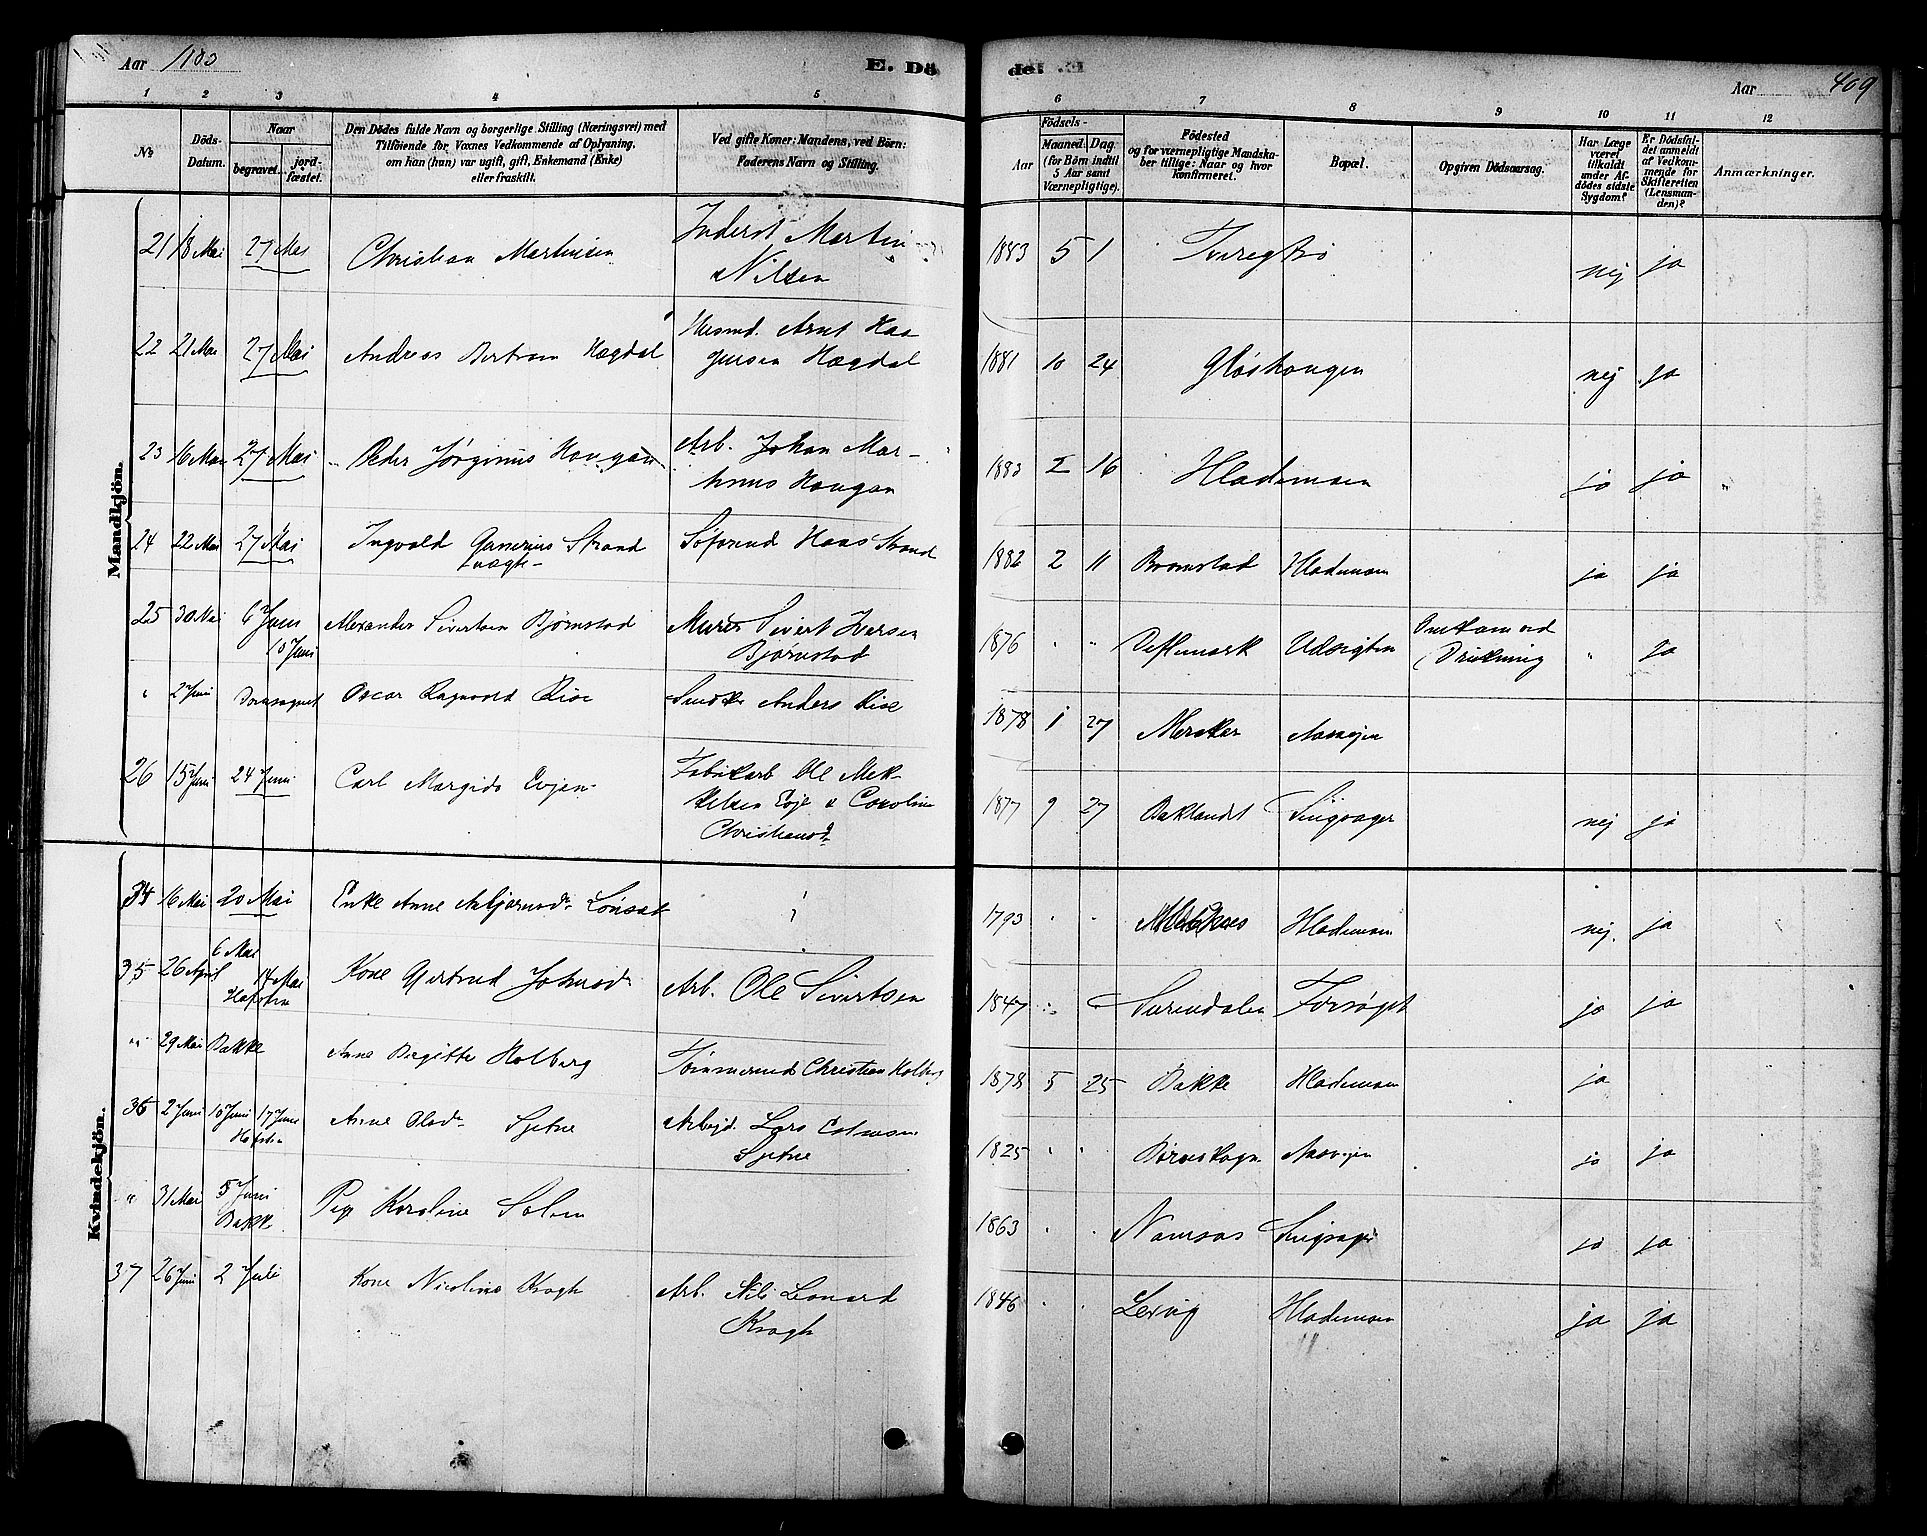 Aar 1883 E. Dö
de. Aar 409
1 2 3 4 5
6 7 8 9 10 11 12
№
Döds-Datum.
Naar
begravet.
jord-fæstet.
Den Dödes fulde Navn og borgerlige Stilling (Næringsvei) med
Tilföiende for Voxnes Vedkommende af Oplysning,
om han (hun) var ugift, gift, Enkemand (Enke)
eller fraskilt.
Ved gifte Koner: Mandens, ved Börn:
Faderens Navn og Stilling.
Födsels-
Aar
Maaned. Dag.
(for Börn indtil
5 Aar samt
Værnepligtige).
Födested
og for værnepligtige Mandska-
ber tillige: Naar og hvor
konfirmeret.
Bopæl.
Opgiven Dödsaarsag.
Har Læge
været
tilkaldt
under Af-
dödes sidste
Sygdom?
Er Dödsfal-
det anmeldt
af Vedkom-
mende for
Skifteretten
(Lensman-
den)?
Anmærkninger.
Mandkjön.
21 18 Mai 27 Mai Christian Martinsen Inderst Martin
Nilsen
1883 5 1 nej ja
22 21 Mai 27 Mai Andreas Bertram Hægdal Husmd. Arnt Haa
gensen Hægdal
1881 10 24 Gløshaugen nej ja
23 16 Mai 27 Mai Peder Jørginus Haugan Arb. Johan Mar-
tinus Haugan
1883 2 16 Hlademoen ja ja
24 22 Mai 27 Mai Ingvald Strand
uægte
Søfmd Haas Strand
1882 2 11 Bromstad Hlademoen ja ja
25 30 Mai 6 Juni
10 Juni
Alexander Sivertsen Bjørnstad Murer Sivert Iversen
Bjørnstad
1876 " " Udsigten Omkom ved
Drukning
" ja
" 2 Juni Domsognet Oscar Ragnvald Rise Smed Anders Rise
1878 1 27 Meraker Aasvejen
26 15 Juni 24 Juni Carl Margido Evjen Fabrikarb Ole Mik
kelsen Evje & Caroline
Christiansd.
1877 9 27 Baklandet Singsager nej ja
Kvindekjön.
34 16 Mai 20 Mai Enke Anne Asbjørnsdr. Lønset
1793 " " Hlademoen nej. ja
35 26 April 6 Mai
14 Mai
Hafstein
Kone Gjertrud Johnsd. Arb. Ole Sivertsen
1847 Surendalen Forsøget ja ja
" 29 Mai Bakke Anne Birgitte Holberg Tømmermd Christian Holberg
1878 5 25 Bakke Hlademoen ja
36 2 Juni 10 Juni 17 Juni
Hafstein
Anne Olsdr. Sjetne Arbejd. Lars Estensen
Sjetne
1825 " " Børseskogn Aasvejen ja ja
" 31 Mai 5 Juni
Bakke
Pige Karoline Solem
1863 " " Namsos Singsager ja ja
37 26 Juni 2 Juli Kone Nicoline Krogh Arb. Nils Leonard
Krogh
1846 " " Hlademoen ja ja